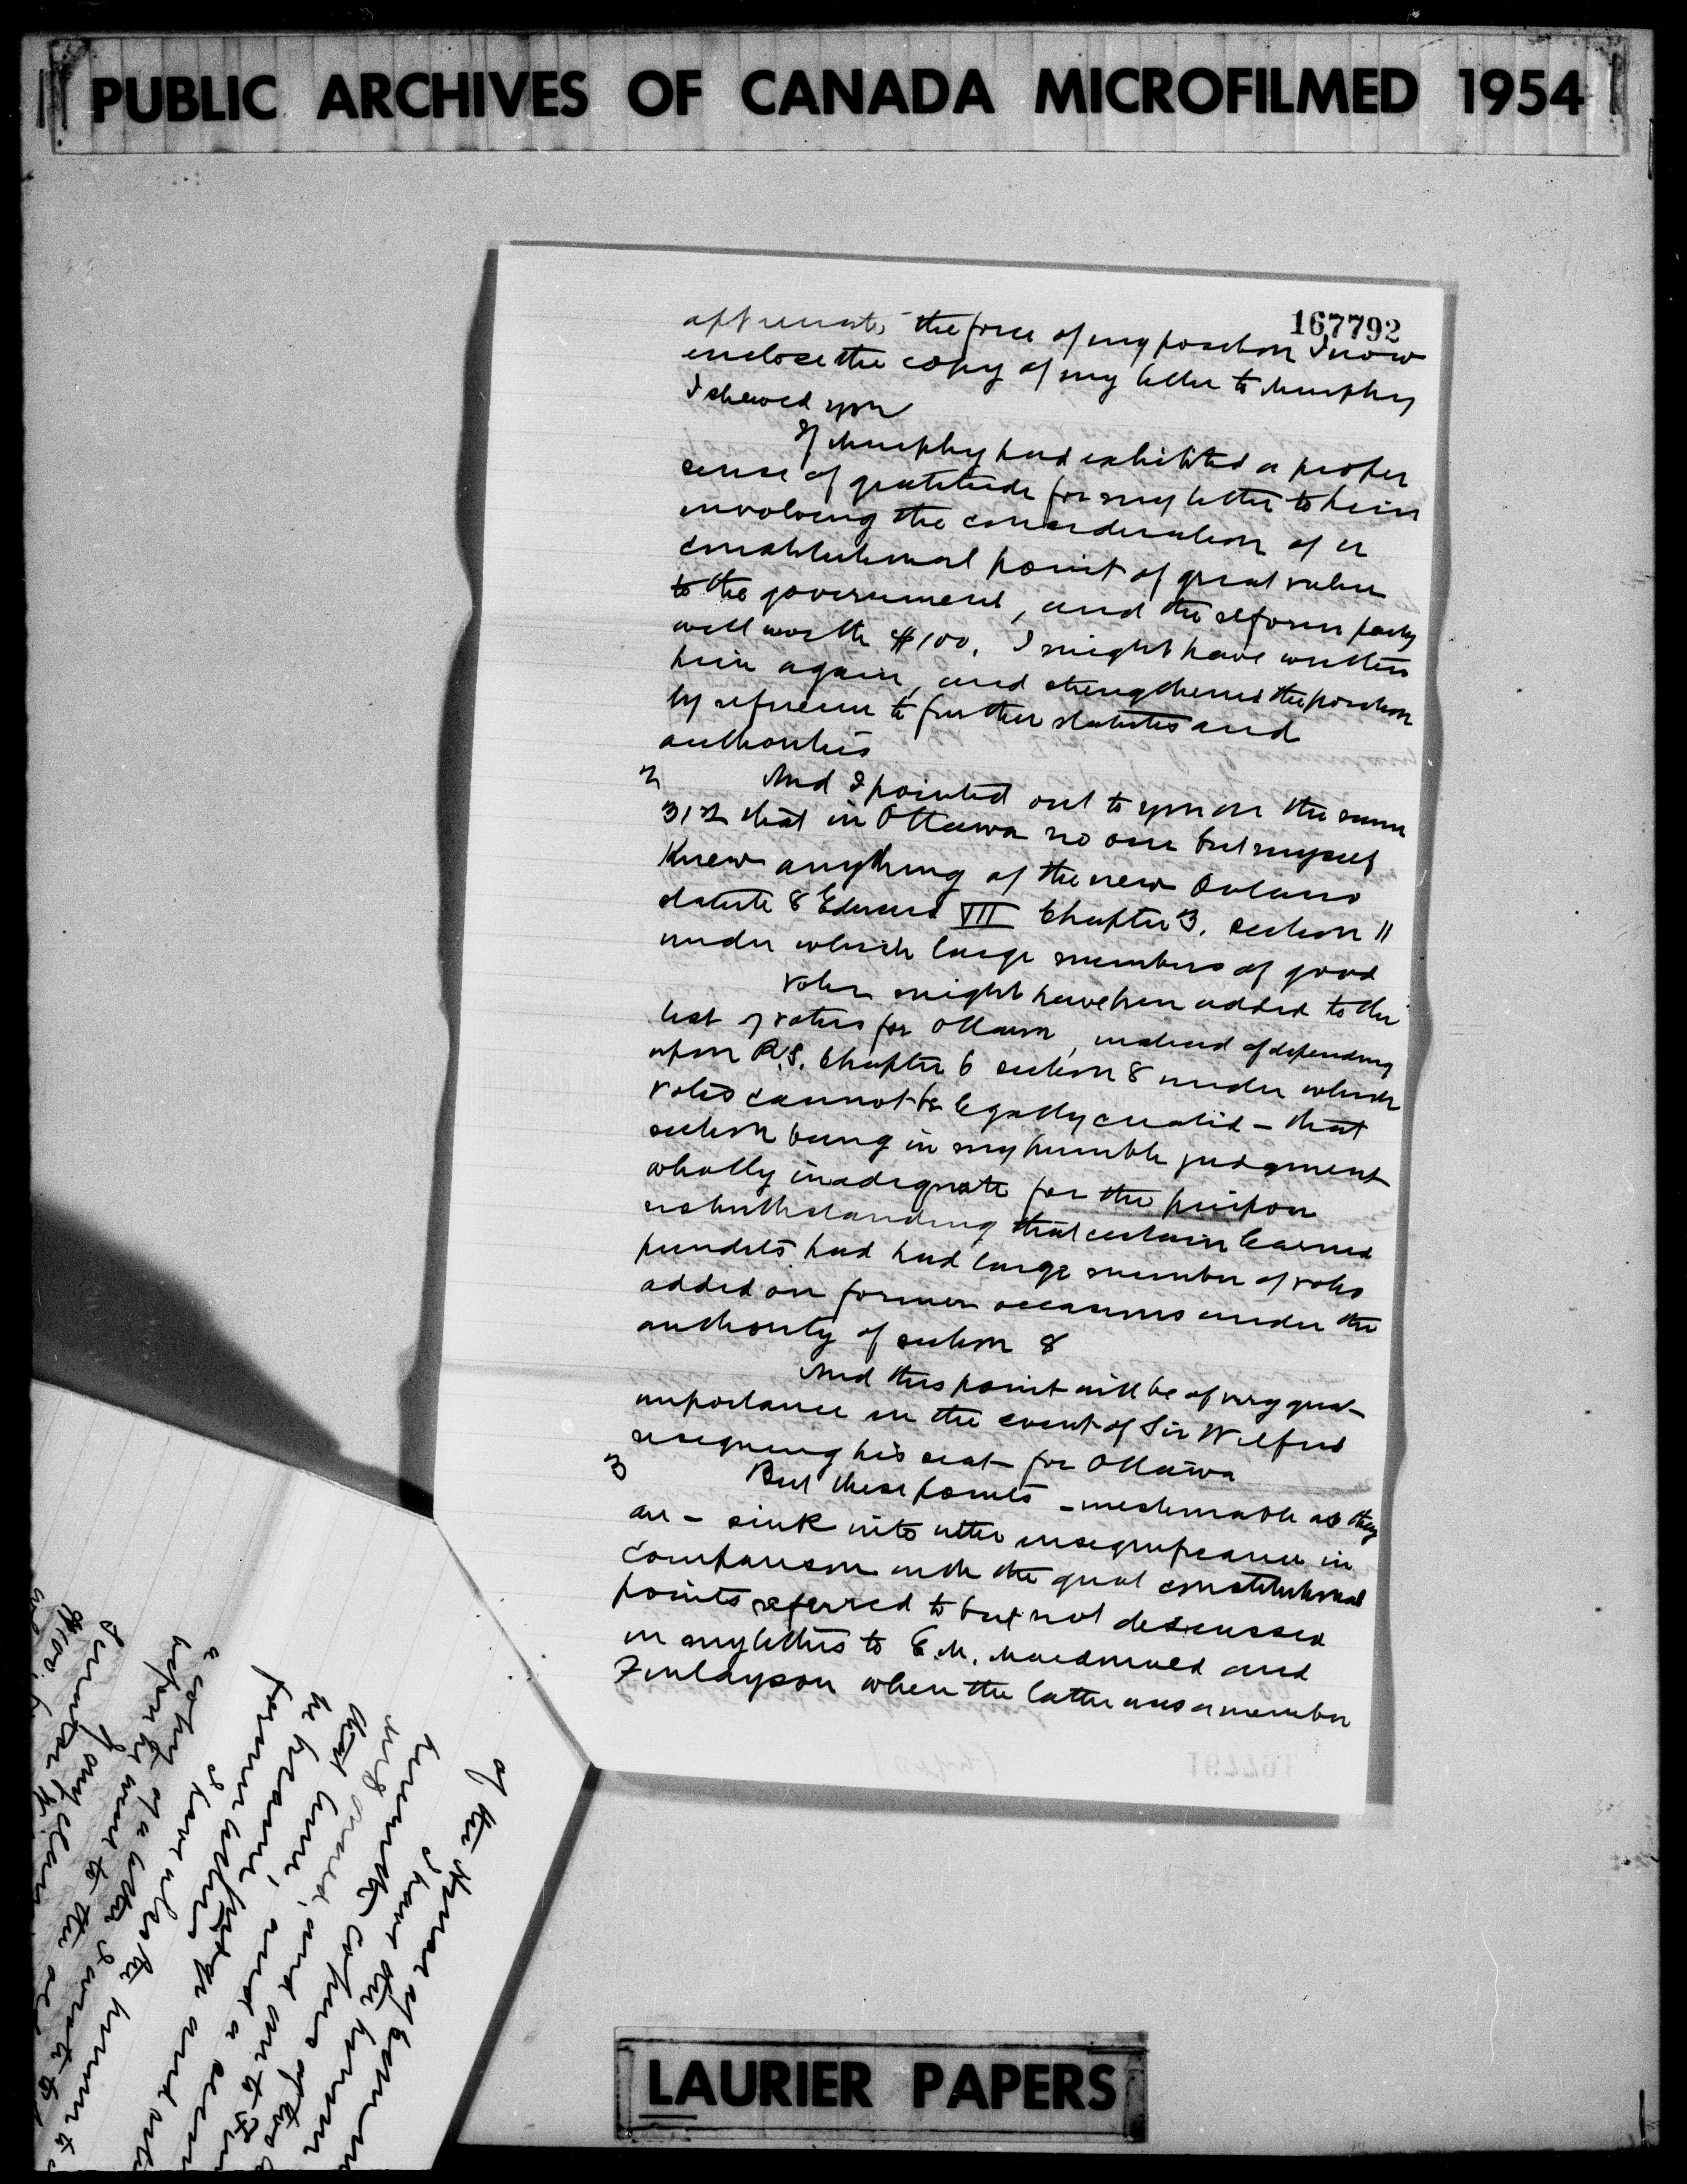 PUBLIC ARCHIVES OF CANADA MICROFILMED 1954
167792
appreciate the force of my position I now
enclose the copy of my letter to Murphy
I shewed you
If Murphy had exhibited a proper
sense of gratitude for my letter to him
involving the consideration of a
constitutional point of great value
to the government, and the reform party
well worth $100, I might have written
him again, and strengthened the position
by reference to further statutes and
authorities
2 And I pointed out to you on the same
31st that in Ottawa no one but myself
knew anything of the new Ontario
statute 8 Edward VII Chapter 3, section 11
under which large numbers of good
votes might have been added to the
list of voters for Ottawa, instead of depending
upon R.S. Chapter 6 section 8 under which
votes cannot be legally created – that
section being in my humble judgment
wholly inadequate for the purpose
notwithstanding that certain learned
pundits had had large number of votes
added on former occasions under the
authority of section 8
And this point will be of very great
importance in the event of Sir Wilfrid
resigning his seat for Ottawa
3 But these points – inestimable as they
are – sink into utter insignificance in
comparison with the great constitutional
points referred to but not discussed
in my letters to E.M. Macdonald and
Finlayson when the latter was a member
of the House of Commons
I have also
a copy of a letter I wrote to
before he went to the
of my claim
$100
LAURIER PAPERS